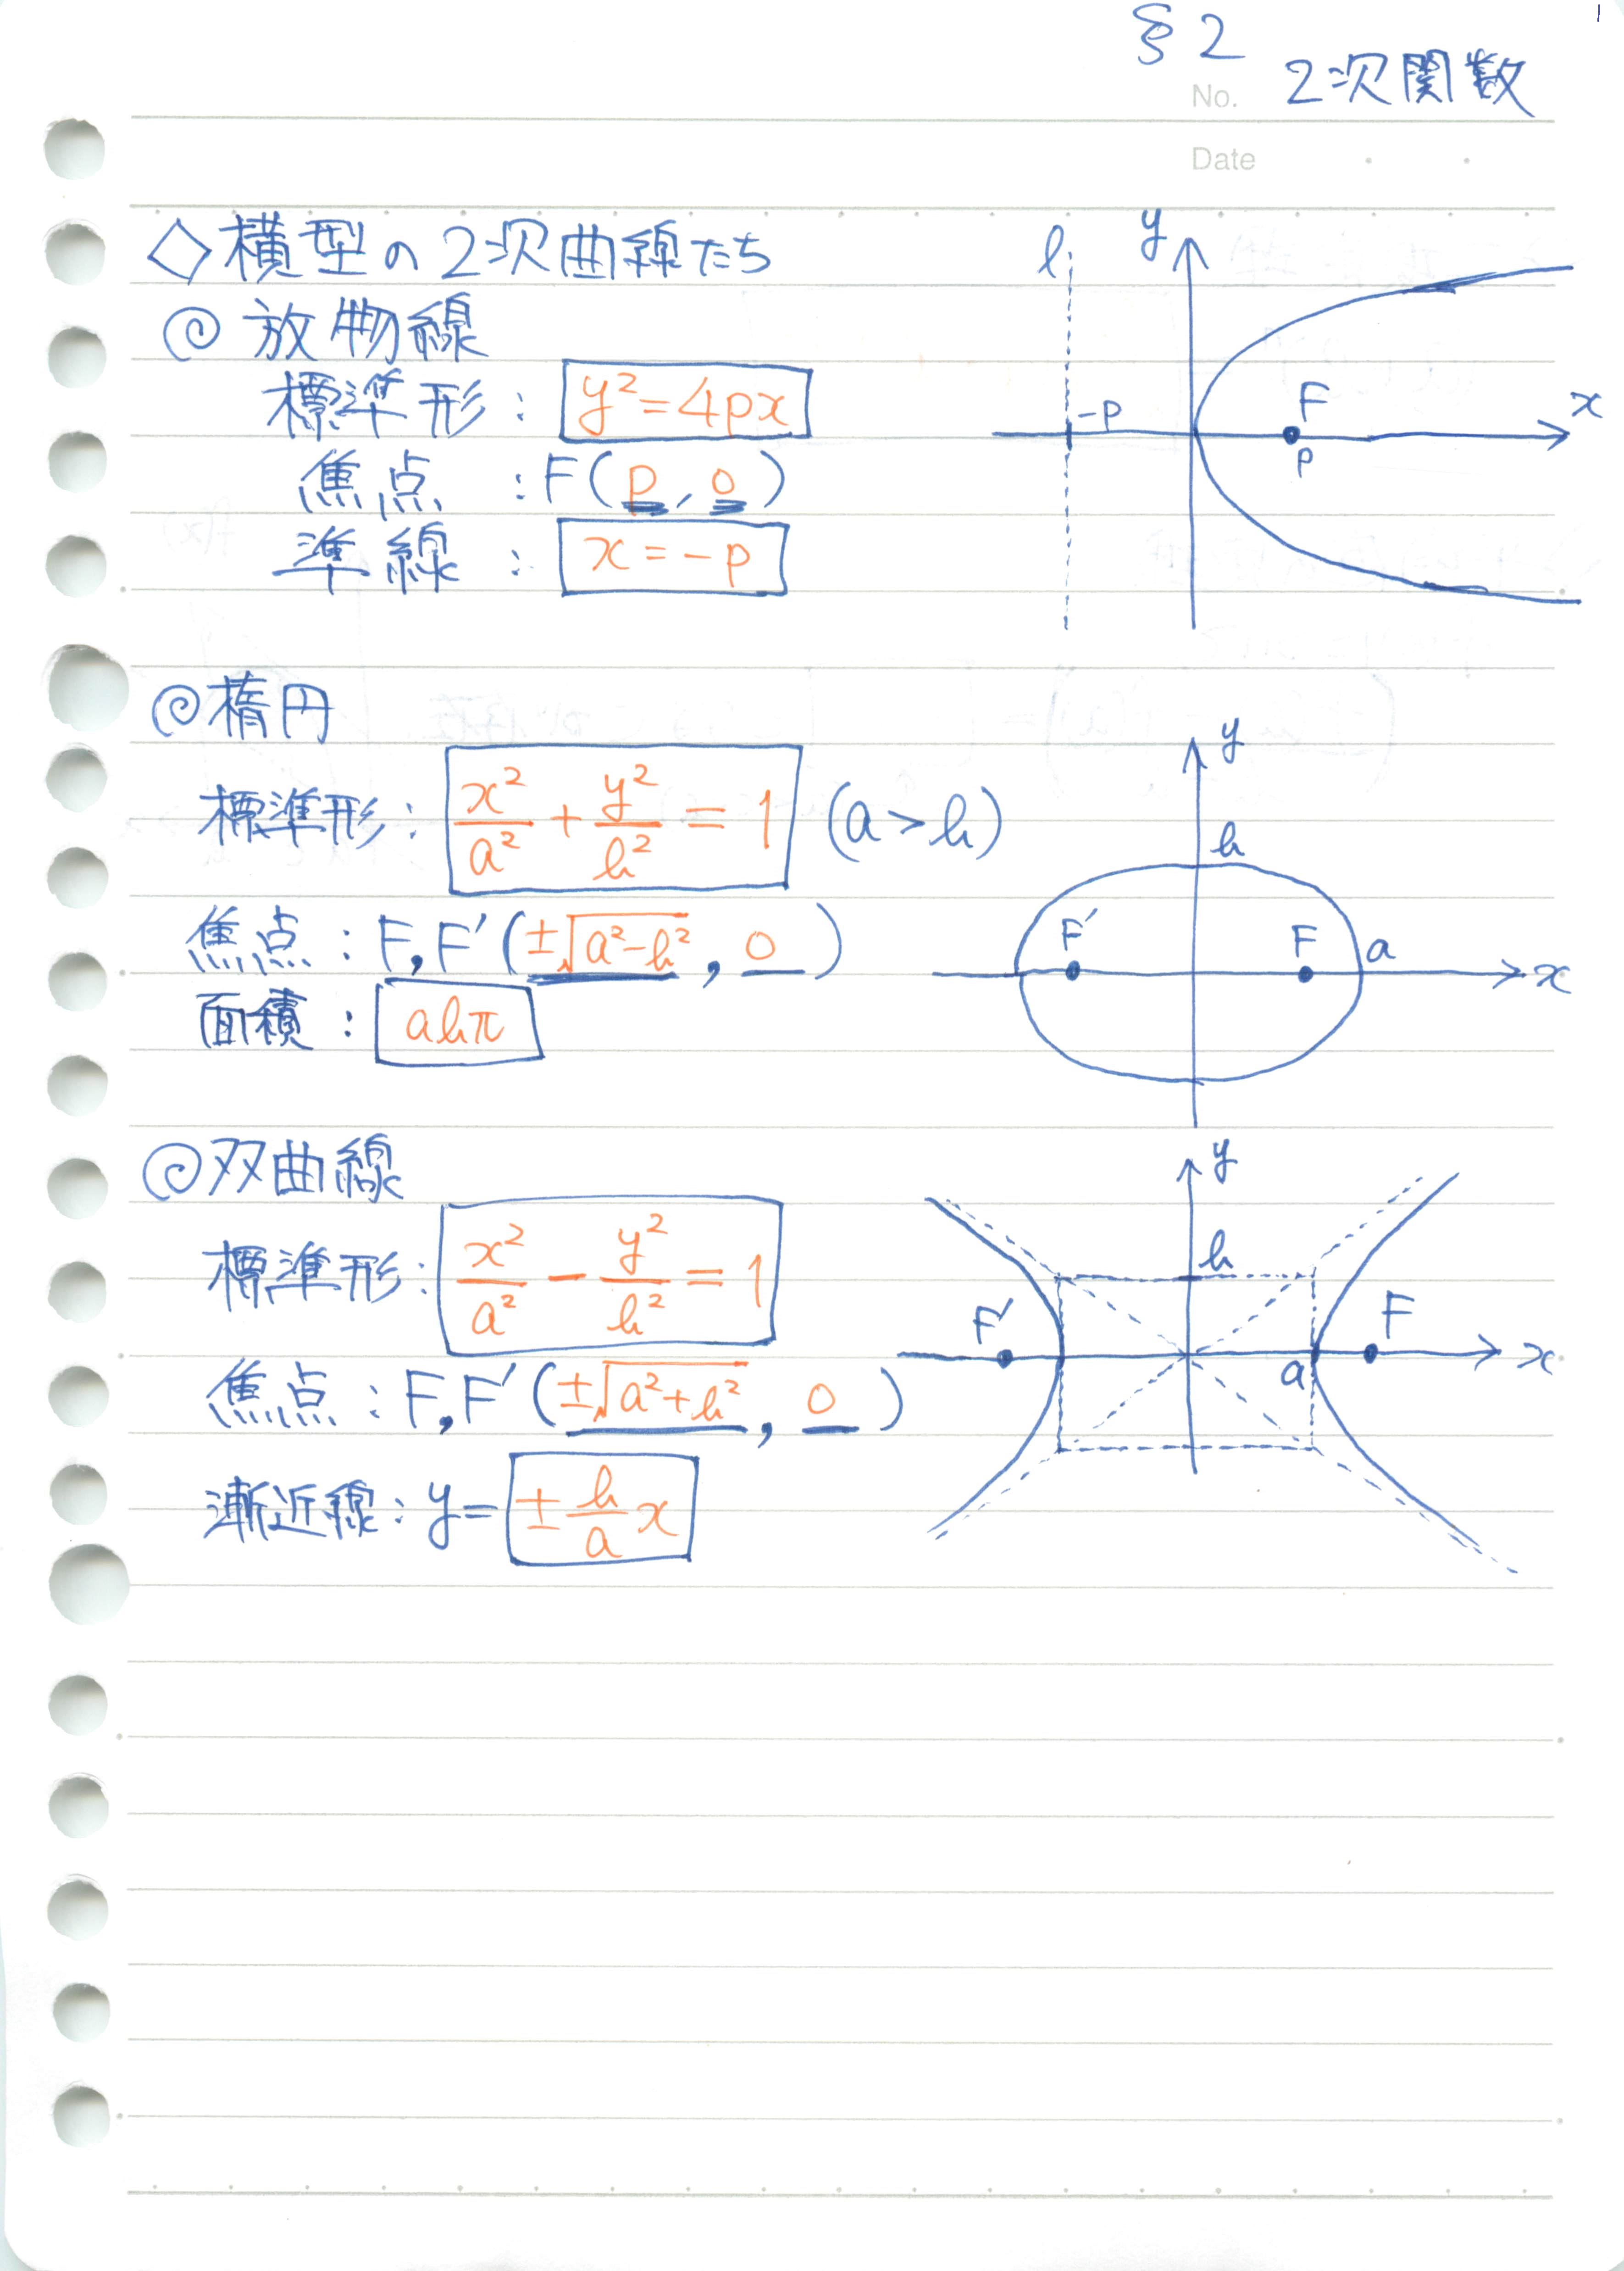 1
§2
No. 2次関数
Date
◇横型の2次曲線たち
◎放物線
標準形: y²=4px
焦点:F(p, 0)
準線: x=-p
l
y
-p
F
p
x
◎楕円
標準形: x²/a² + y²/b² = 1 (a>b)
焦点: F,F′(±√a²-b², 0)
面積: abπ
y
b
F′
F
a
x
◎双曲線
標準形: x²/a² - y²/b² = 1
焦点: F,F′(±√a²+b², 0)
漸近線: y=±b/a x
y
b
F′
a
F
x